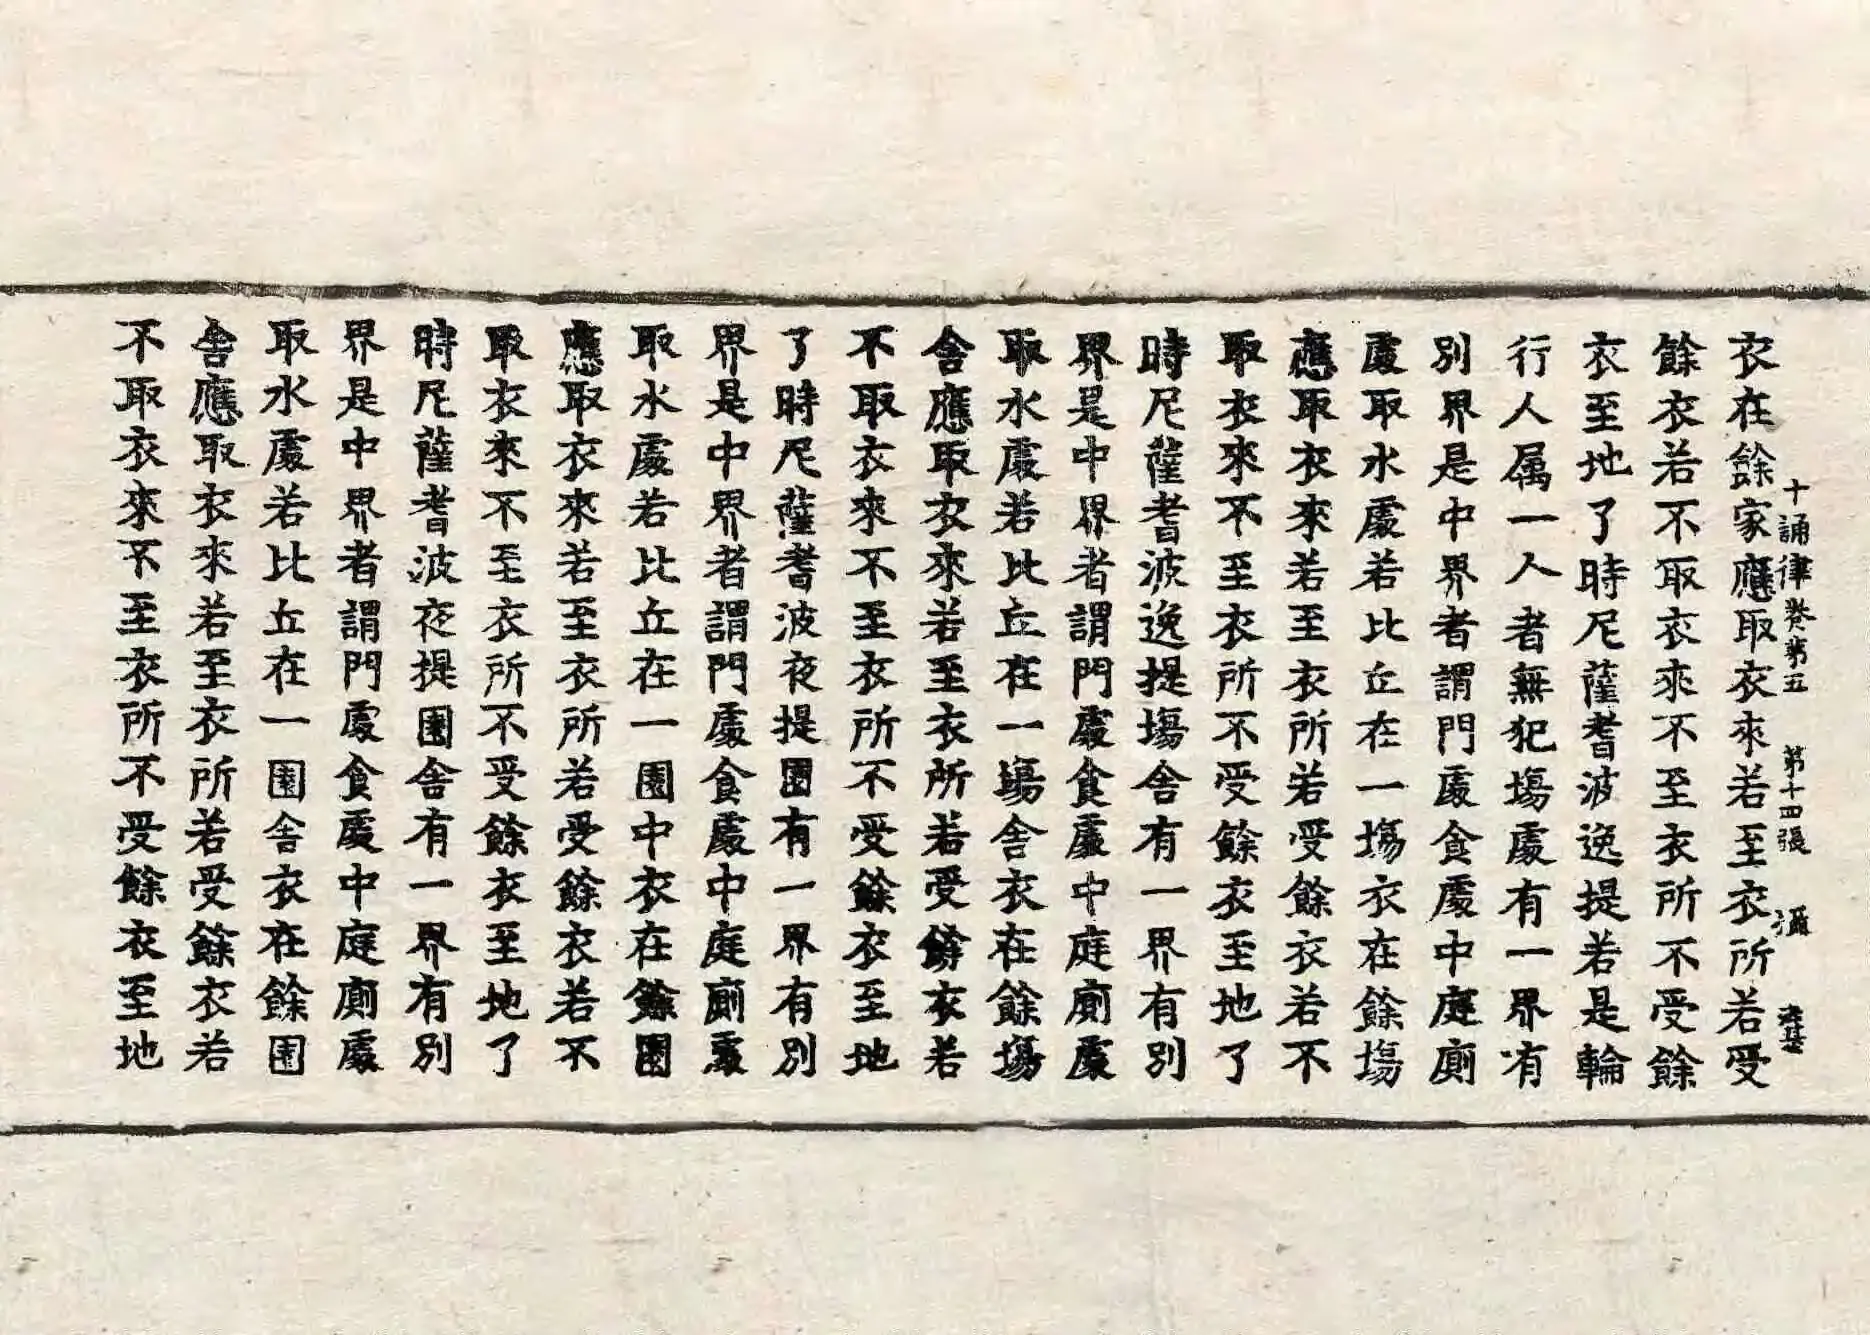 十誦律卷第五 第十四張 攝
衣在餘家應取衣來若至衣所若受
餘衣若不取衣來不至衣所不受餘
衣至地了時尼薩耆波逸提若是輪
行人属一人者無犯塲處有一界有
別界是中界者謂門處食處中庭廁
處取水處若比丘在一塲衣在餘塲
應取衣來若至衣所若受餘衣若不
取衣來不至衣所不受餘衣至地了
時尼薩耆波逸提塲舍有一界有別
界是中界者謂門處食處中庭廁處
取水處若比丘在一塲舍衣在餘塲
舍應取衣來若至衣所若受餘衣若
不取衣來不至衣所不受餘衣至地
了時尼薩耆波夜提園有一界有別
界是中界者謂門處食處中庭廁處
取水處若比丘在一園中衣在餘園
應取衣來若至衣所若受餘衣若不
取衣來不至衣所不受餘衣至地了
時尼薩耆波夜提園舍有一界有別
界是中界者謂門處食處中庭廁處
取水處若比丘在一園舍衣在餘園
舍應取衣來若至衣所若受餘衣若
不取衣來不至衣所不受餘衣至地